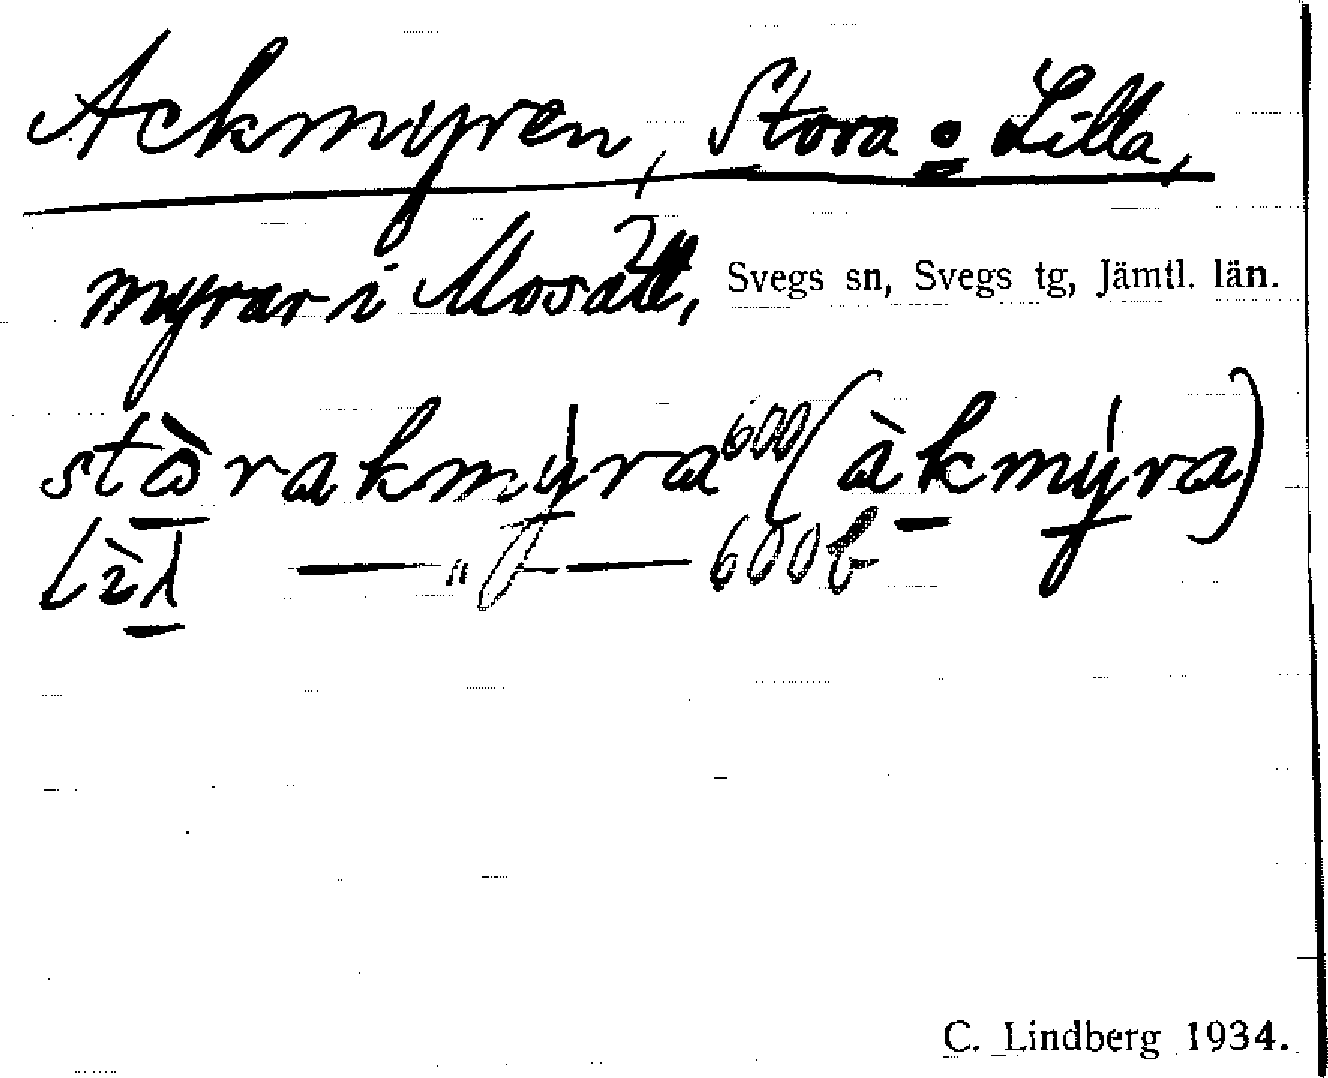 Ackmyren, Stora o Lilla,
myrar i Mosätt, Svegs sn, Svegs tg, Jämtl. län.
stò̱rakmýra 600 (àkmýra)
lìl — " — 600b
C. Lindberg 1934.